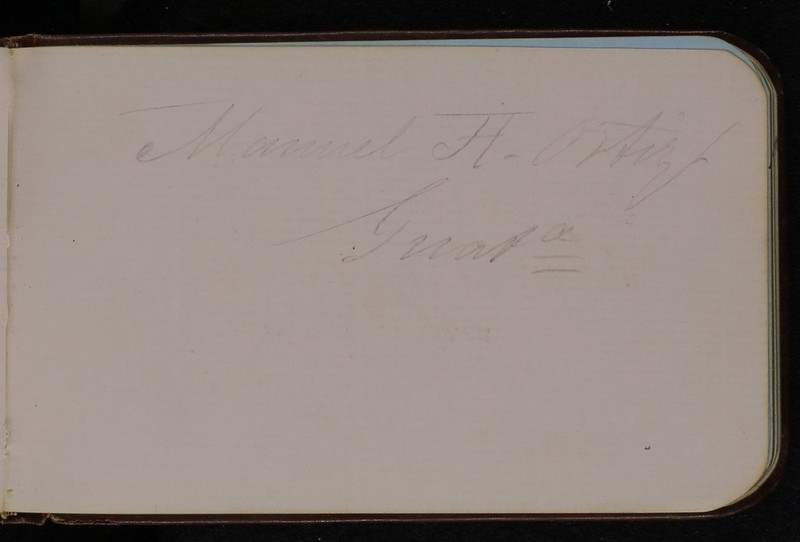 Manuel H. Ortiz
Guata